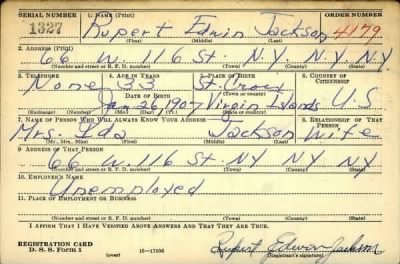 SERIAL NUMBER 1. NAME (Print) ORDER NUMBER
1327 Rupert Edwin Jackson 4179
2. ADDRESS (Print)
66 W. 116 St. N.Y. N.Y. N.Y.
(Number and street or R. F. D. number) (Town) (County) (State)
3. TELEPHONE 4. AGE IN YEARS 5. PLACE OF BIRTH 6. COUNTRY OF CITIZENSHIP
None 33 St. Croix
DATE OF BIRTH (Town or county)
Jan 26 1907 Virgin Islands U.S.
(Exchange) (Number) (Mo.) (Day) (Yr.) (State or country)
7. NAME OF PERSON WHO WILL ALWAYS KNOW YOUR ADDRESS 8. RELATIONSHIP OF THAT PERSON
Mrs. Ida Jackson Wife
(Mr., Mrs., Miss) (First) (Middle) (Last)
9. ADDRESS OF THAT PERSON
66 W. 116 St. N.Y. N.Y. N.Y.
(Number and street or R. F. D. number) (Town) (County) (State)
10. EMPLOYER'S NAME
Unemployed
11. PLACE OF EMPLOYMENT OR BUSINESS
(Number and street or R. F. D. number) (Town) (County) (State)
I AFFIRM THAT I HAVE VERIFIED ABOVE ANSWERS AND THAT THEY ARE TRUE.
REGISTRATION CARD
D. S. S. Form 1 (over) 16—17105
Rupert Edwin Jackson
(Registrant's signature)